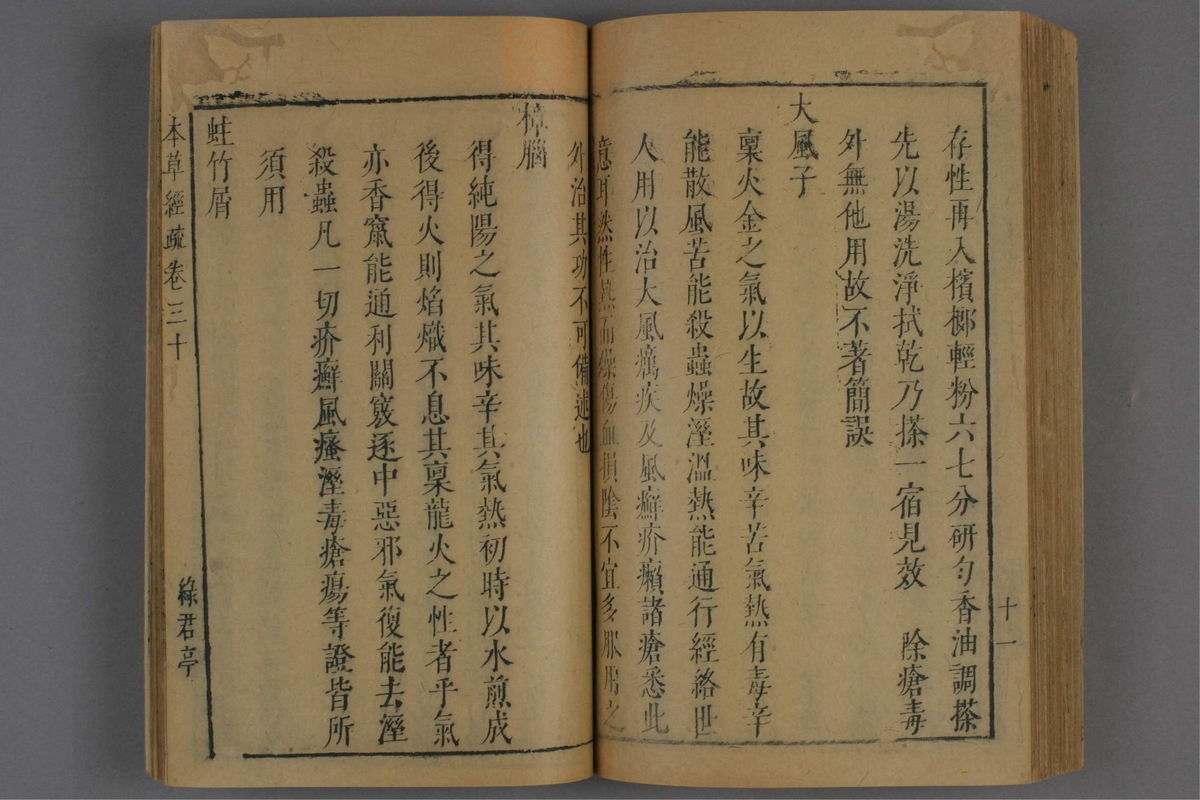 十一
存性再入檳榔輕粉六七分研勻香油調搽
先以湯洗淨拭乾乃搽一宿見效 除瘡毒
外無他用故不著簡誤
大風子
稟火金之氣以生故其味辛苦氣熱有毒辛
能散風苦能殺蟲燥溼溫熱能通行經絡世
人用以治大風癘疾及風癬疥癩諸瘡悉此
意耳然性熱而燥傷血損陰不宜多服用之
外治其功不可備述也
樟腦
得純陽之氣其味辛其氣熱初時以水煎成
後得火則焰熾不息其稟龍火之性者乎氣
亦香竄能通利關竅逐中惡邪氣復能去溼
殺蟲凡一切疥癬風瘙溼毒瘡瘍等證皆所
須用
蛀竹屑
本草經疏卷三十
綠君亭